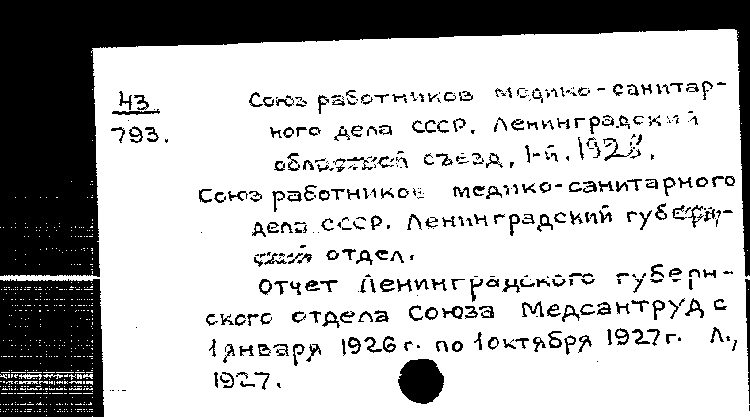 43
793.
Союз работников медико-санитар-
ного дела СССР. Ленинградский
областной съезд, 1-й. 1928.
Союз работников медико-санитарного
дела СССР. Ленинградский губерн-
ский отдел.
Отчет Ленинградского губерн-
ского отдела Союза Медсантруд с
1 января 1926 г. по 1 октября 1927 г. Л.,
1927.